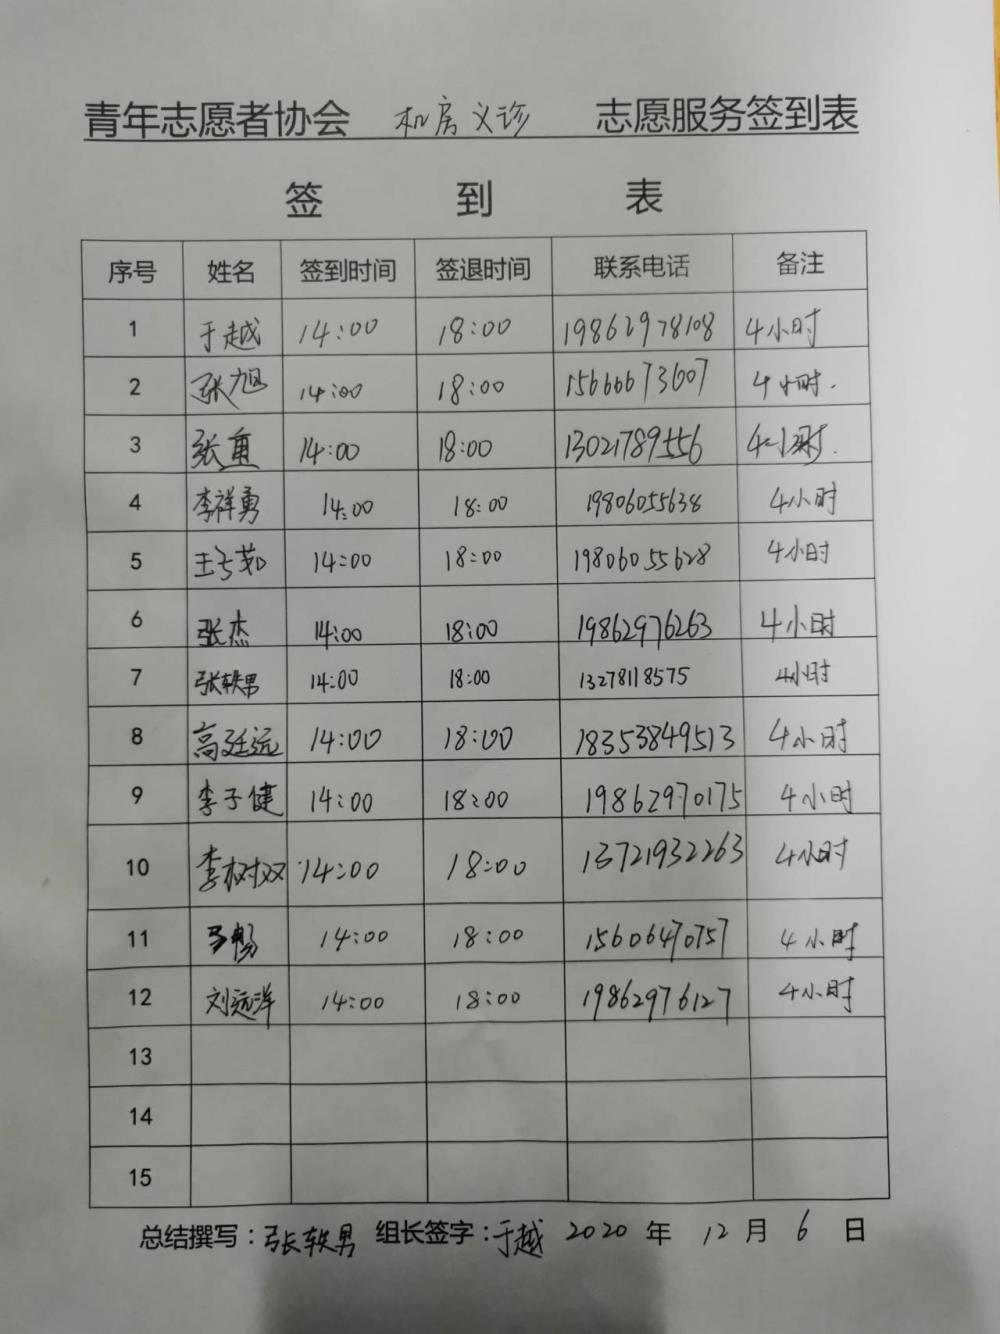 青年志愿者协会 机房义诊 志愿服务签到表
签 到 表
序号 姓名 签到时间 签退时间 联系电话 备注
1 于越 14:00 18:00 19862978108 4小时
2 张旭 14:00 18:00 15666673607 4小时.
3 张重 14:00 18:00 13021789556 4小时.
4 李祥勇 14:00 18:00 19806055638 4小时
5 14:00 18:00 19806055628 4小时
6 张杰 14:00 18:00 19862976263 4小时
7 张轶男 14:00 18:00 13278118575 4小时
8 高廷远 14:00 18:00 18353849513 4小时
9 李子健 14:00 18:00 19862970175 4小时
10 李树双 14:00 18:00 13721932263 4小时
11 马畅 14:00 18:00 15606470757 4小时
12 刘远洋 14:00 18:00 19862976127 4小时
13
14
15
总结撰写：张轶男 组长签字：于越 2020 年 12 月 6 日